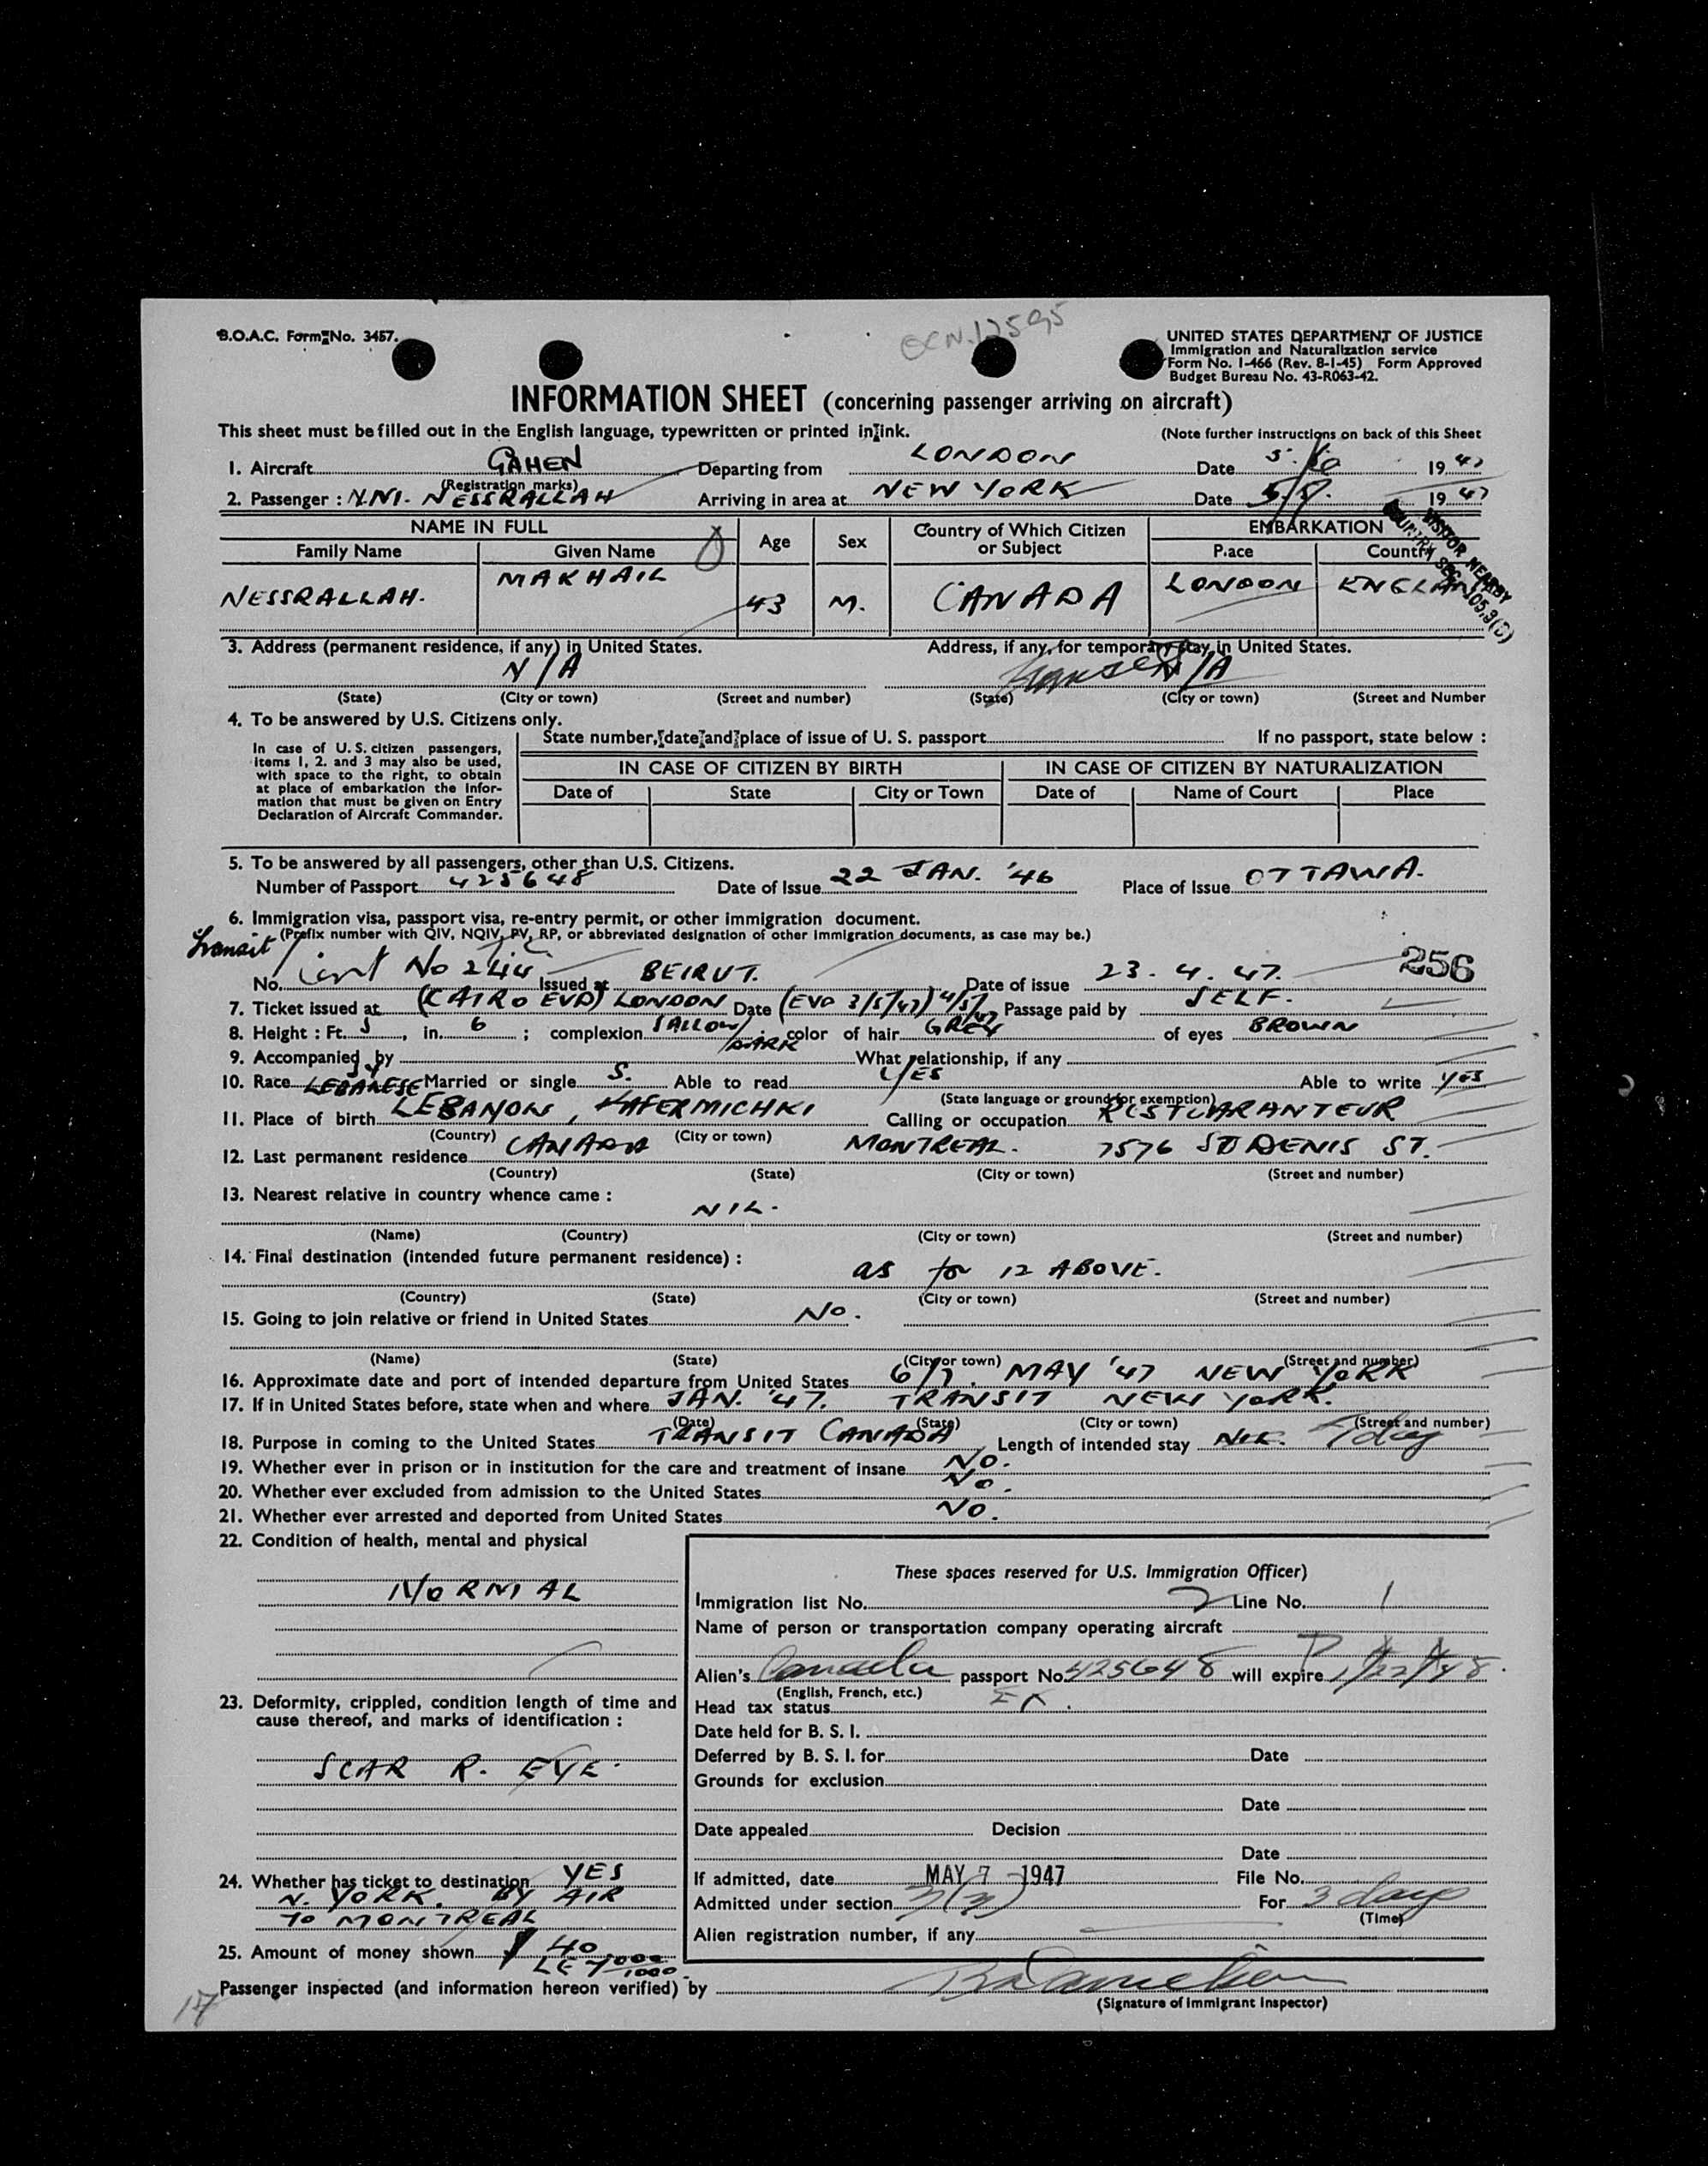 B.O.A.C. Form No. 3457.
UNITED STATES DEPARTMENT OF JUSTICE
Immigration and Naturalization service
Form No. I-466 (Rev. 8-1-45) Form Approved
Budget Bureau No. 43-R063-42.
INFORMATION SHEET (concerning passenger arriving on aircraft)
This sheet must be filled out in the English language, typewritten or printed in ink.
(Note further instructions on back of this Sheet
1. Aircraft GAHEN Departing from LONDON Date 19 47
(Registration marks)
2. Passenger : NESSRALLAH Arriving in area at NEW YORK Date 19 47
NAME IN FULL Age Sex Country of Which Citizen or Subject EMBARKATION
Family Name Given Name Place Country
NESSRALLAH. MAKHAIL 43 M. CANADA LONDON ENGLAND
VISITOR NEARBY
COUNTRY SEC. 105.3(C)
3. Address (permanent residence, if any) in United States. Address, if any, for temporary stay in United States.
N/A N/A
(State) (City or town) (Street and number) (State) (City or town) (Street and Number
4. To be answered by U.S. Citizens only.
In case of U.S. citizen passengers, items 1, 2. and 3 may also be used, with space to the right, to obtain at place of embarkation the Information that must be given on Entry Declaration of Aircraft Commander.
State number, date and place of issue of U. S. passport If no passport, state below :
IN CASE OF CITIZEN BY BIRTH IN CASE OF CITIZEN BY NATURALIZATION
Date of State City or Town Date of Name of Court Place
5. To be answered by all passengers, other than U.S. Citizens.
Number of Passport 425648 Date of Issue 22 JAN. '46 Place of Issue OTTAWA.
6. Immigration visa, passport visa, re-entry permit, or other immigration document.
(Prefix number with QIV, NQIV, PV, RP, or abbreviated designation of other immigration documents, as case may be.)
Transit
256
No. Cert No 244 Issued at BEIRUT. Date of issue 23. 4. 47.
7. Ticket issued at (CAIRO EVD) LONDON Date (EVD 3/5/47) 4/5/47 Passage paid by SELF.
8. Height : Ft. 5, in. 6 ; complexion SALLOW/DARK color of hair GREY of eyes BROWN
9. Accompanied by What relationship, if any
10. Race LEBANESE Married or single S. Able to read YES Able to write YES
(State language or ground for exemption)
11. Place of birth LEBANON, KAFERMICHKI Calling or occupation RESTUARANTEUR
(Country) (City or town)
12. Last permanent residence CANADA MONTREAL. 7576 ST DENIS ST.
(Country) (State) (City or town) (Street and number)
13. Nearest relative in country whence came :
NIL.
(Name) (Country) (City or town) (Street and number)
14. Final destination (intended future permanent residence) :
as for 12 ABOVE.
(Country) (State) (City or town) (Street and number)
15. Going to join relative or friend in United States No.
(Name) (State) (City or town) (Street and number)
16. Approximate date and port of intended departure from United States 6/7. MAY '47 NEW YORK
17. If in United States before, state when and where JAN. '47. TRANSIT NEW YORK.
(Date) (State) (City or town) (Street and number)
18. Purpose in coming to the United States TRANSIT CANADA Length of intended stay NIL. 1 day
19. Whether ever in prison or in institution for the care and treatment of insane NO.
20. Whether ever excluded from admission to the United States No.
21. Whether ever arrested and deported from United States NO.
22. Condition of health, mental and physical
NORMAL
23. Deformity, crippled, condition length of time and cause thereof, and marks of identification :
SCAR R. EYE.
24. Whether has ticket to destination YES
N. YORK. BY AIR
TO MONTREAL
25. Amount of money shown $ 40
These spaces reserved for U.S. Immigration Officer)
Immigration list No. 2 Line No. 1
Name of person or transportation company operating aircraft
Alien's Canada passport No. 425648 will expire 1/22/48.
(English, French, etc.)
Head tax status EX.
Date held for B. S. I.
Deferred by B. S. I. for Date
Grounds for exclusion
Date
Date appealed Decision
Date
If admitted, date MAY 7 1947 File No.
Admitted under section 3(3) For 3 days
(Time)
Alien registration number, if any
Passenger inspected (and information hereon verified) by
(Signature of Immigrant Inspector)
17